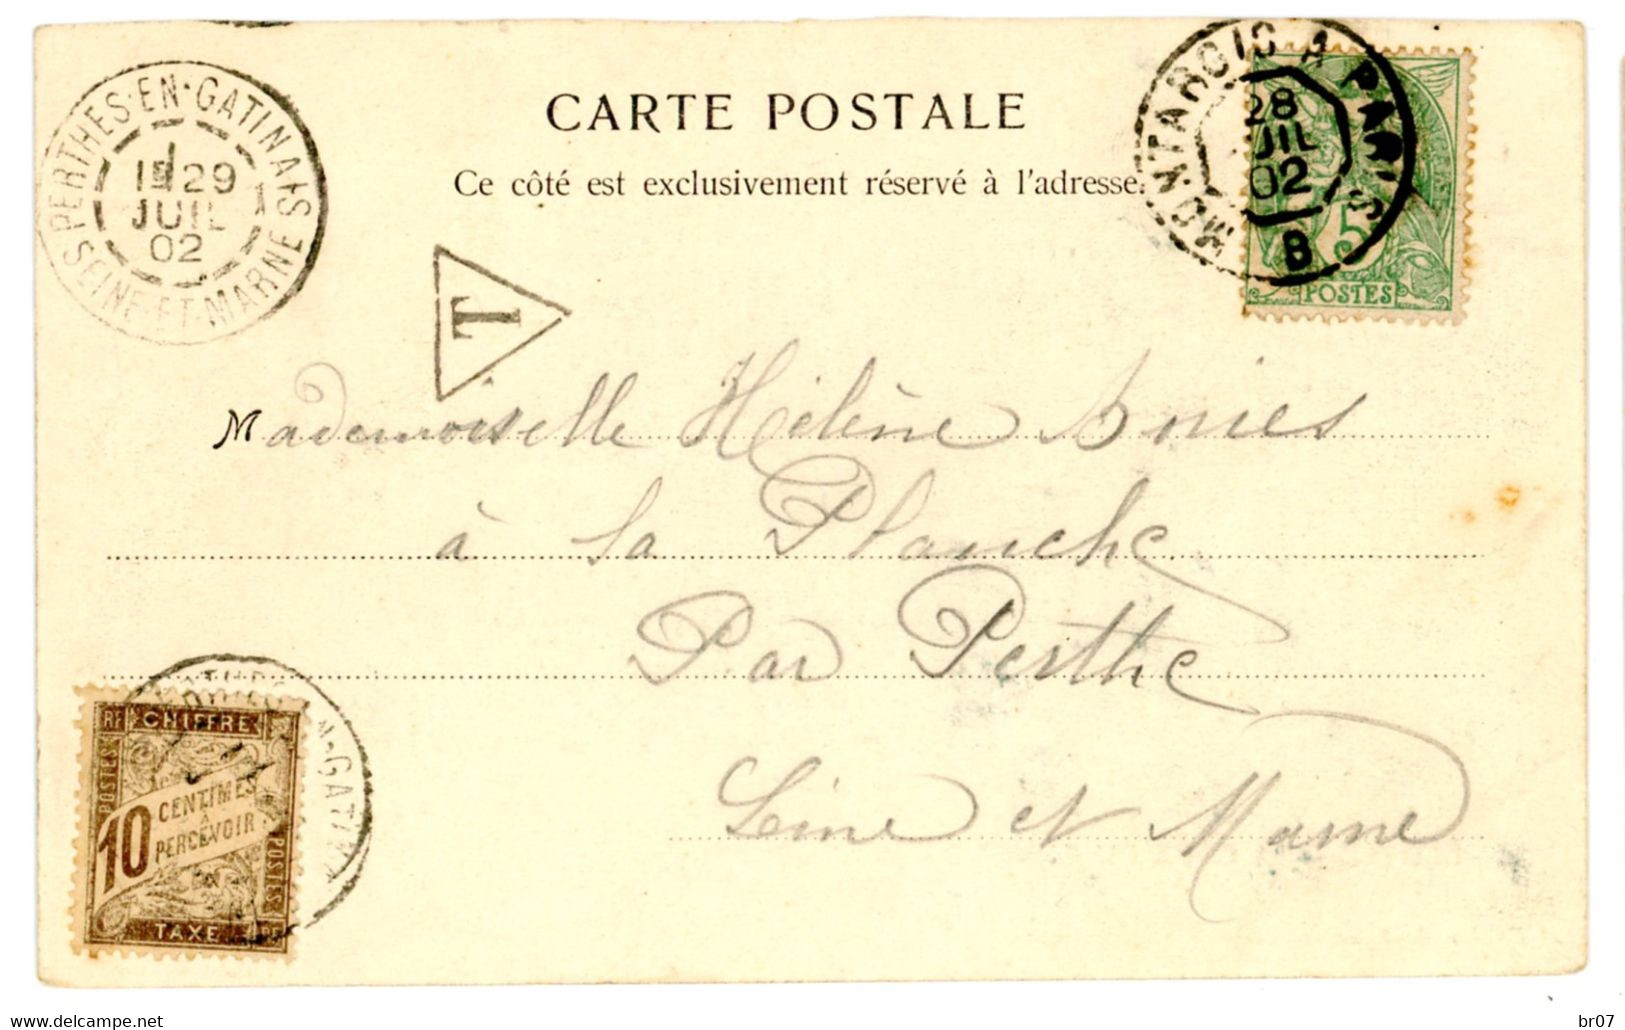 PERTHES-EN-GATINAIS
1E 29
JUIL
02
SEINE-ET-MARNE
CARTE POSTALE
Ce côté est exclusivement réservé à l'adresse.
MONTARGIS A PARIS
28
JUIL
02
B
5
POSTES
T
Mademoiselle Hélène
à la Planche
Par Perthe
Seine et Marne
EN-GATINA
RF CHIFFRE
POSTES
10 CENTIMES
À
PERCEVOIR
POSTES
TAXE RF
www.delcampe.net
br07